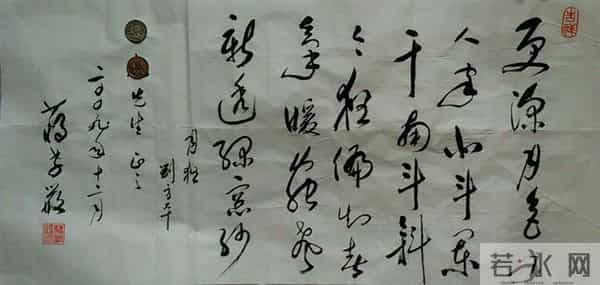 更深月色半
人家北斗阑
干南斗斜
今夜偏知春
气暖虫声
新透绿窗纱
月夜
刘方平
先生正之
二〇〇九年十二月
若水网